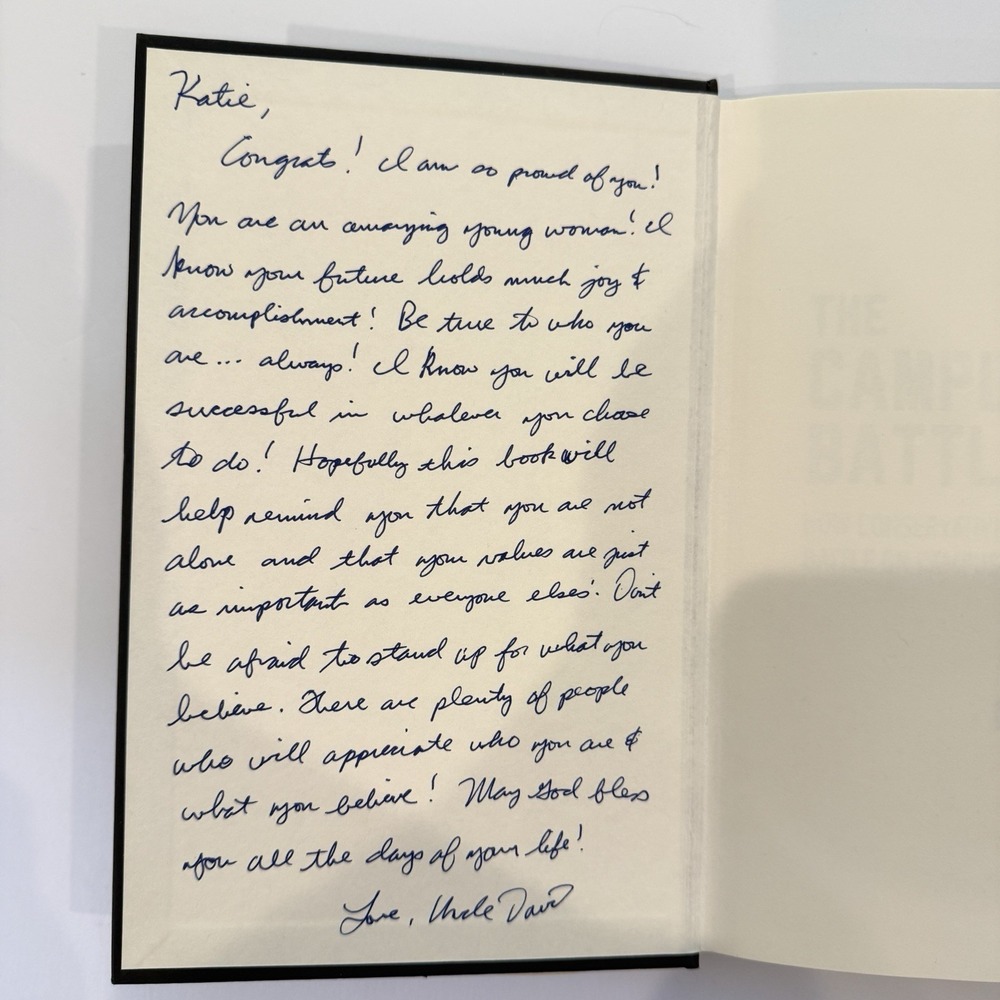 Katie,
Congrats! I am so proud of you!
You are an amazing young woman! I
know your future holds much joy &
accomplishment! Be true to who you
are... always! I know you will be
successful in whatever you choose
to do! Hopefully this book will
help remind you that you are not
alone and that your values are just
as important as everyone elses'. Don't
be afraid to stand up for what you
believe. There are plenty of people
who will appreciate who you are &
what you believe! May God bless
you all the days of your life!
Love, Uncle David
THE